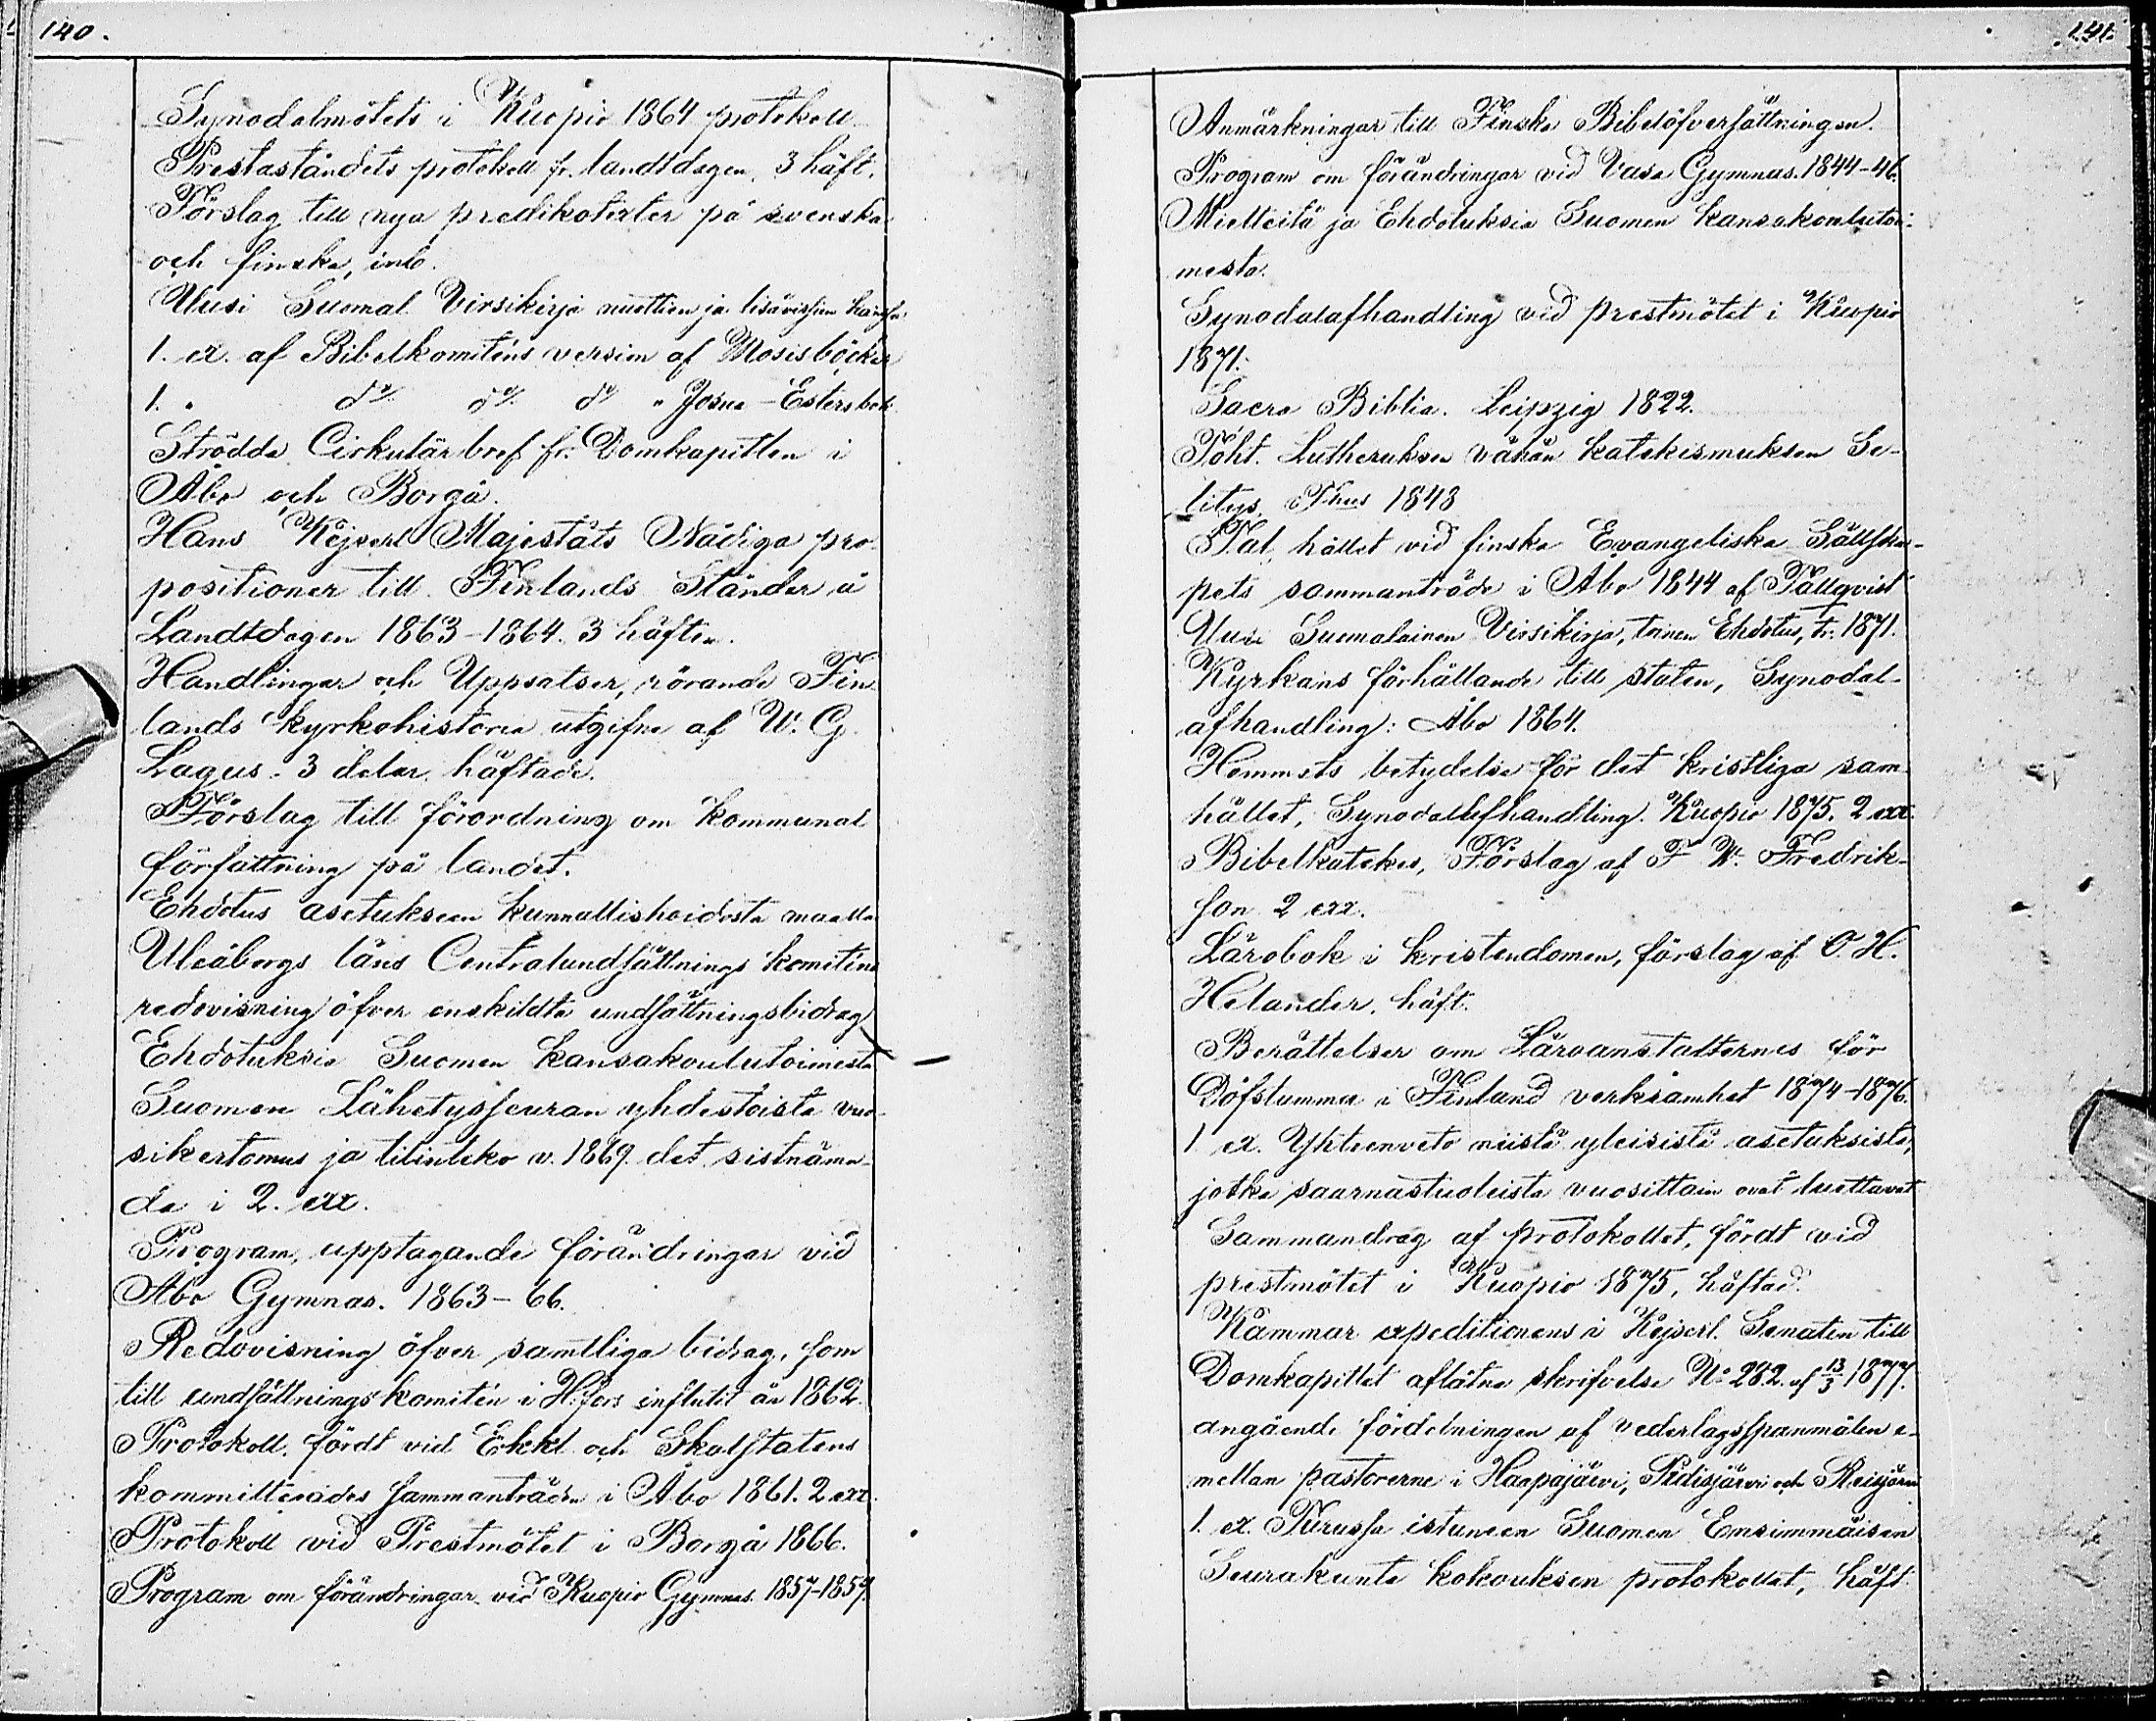 140.
Synodalmötets i Kuopio 1864 protokoll
Prestaståndets protokoll fr. landtdagen, 3 häft.
Förslag till nya predikotexter på svenska
och finska, inb.
Uusi Suomal. Virsikirja nuottien ja lisävirsien kanssa
1. ex. af Bibelkomiténs version af Mosisböcker
1. " do do do " Josua - Esters bok
Strödda Cirkulärbref fr. Domkapitlen i
Åbo och Borgå.
Hans Kejserl Majestäts Nådiga pro-
positioner till Finlands Ständer å
Landtdagen 1863-1864. 3 häften.
Handlingar och Uppsatser, rörande Fin-
lands kyrkohistoria utgifna af W. G.
Lagus. 3 delar, häftade.
Förslag till förordning om kommunal
författning på landet.
Ehdotus asetukseen kunnallishoidosta maalla
Uleåborgs läns Centralundsättnings komiténs
redovisning öfver enskildta undsättningsbidrag
Ehdotuksia Suomen kansakoulutoimesta —
Suomen Lähetysseuran yhdestoista vuo-
sikertomus ja tilinteko v. 1869. det sistnämn-
da i 2. exx.
Program, upptagande förändringar vid
Åbo Gymnas. 1863-66.
Redovisning öfver samtliga bidrag, som
till undsättningskomitén i H:fors influtit år 1862.
Protokoll, fördt vid Eckl. och Skolstatens
kommitterades sammanträde i Åbo 1861. 2 exx.
Protokoll vid Prestmötet i Borgå 1866.
Program om förändringar vid Kuopio Gymnas. 1857-1859.
141.
Anmärkningar till Finska Bibelöfversättningen.
Program om förändringar vid Vasa Gymnas. 1844-46.
Mietteitä ja Ehdotuksia Suomen kansakoulutoi-
mesta.
Synodalafhandling vid prestmötet i Kuopio
1871.
Sacra Biblia. Leipzig 1822.
Toht. Lutheruksen vähän katekismuksen Se-
litys, Thus 1848
Tal, hållet vid finska Evangeliska Sällska-
pets sammanträde i Åbo 1844 af Tallqvist
Uusi Suomalainen Virsikirja, toinen Ehdotus, Tr. 1871.
Kyrkans förhållande till staten, Synodal-
afhandling: Åbo 1864.
Hemmets betydelse för det kristliga sam-
hället, Synodalafhandling. Kuopio 1875. 2 exx.
Bibelkatekes, Förslag af F W. Fredrik-
son 2 exx.
Lärobok i kristendomen, förslag af O. H.
Helander, häft.
Berättelser om Läroanstalternes för
Döfstumma i Finland verksamhet 1874-1876.
1. ex. Yhteenveto niistä yleisistä asetuksista,
jotka saarnastuoleista vuosittain ovat luettavat
Sammandrag af protokollet, fördt vid
prestmötet i Kuopio 1875, häftad.
Kammar expeditionens i Kejserl. Senaten till
Domkapitlet aflåtna skrifvelse No 282. af 13/3 1877.
angående fördelningen af vederlagsspanmålen e-
mellan pastorerne i Haapajärvi, Pidisjärvi och Reisjärvi
1. ex. Turussa istuneen Suomen Ensimmäisen
Seurakunta kokouksen protokollat, häft.